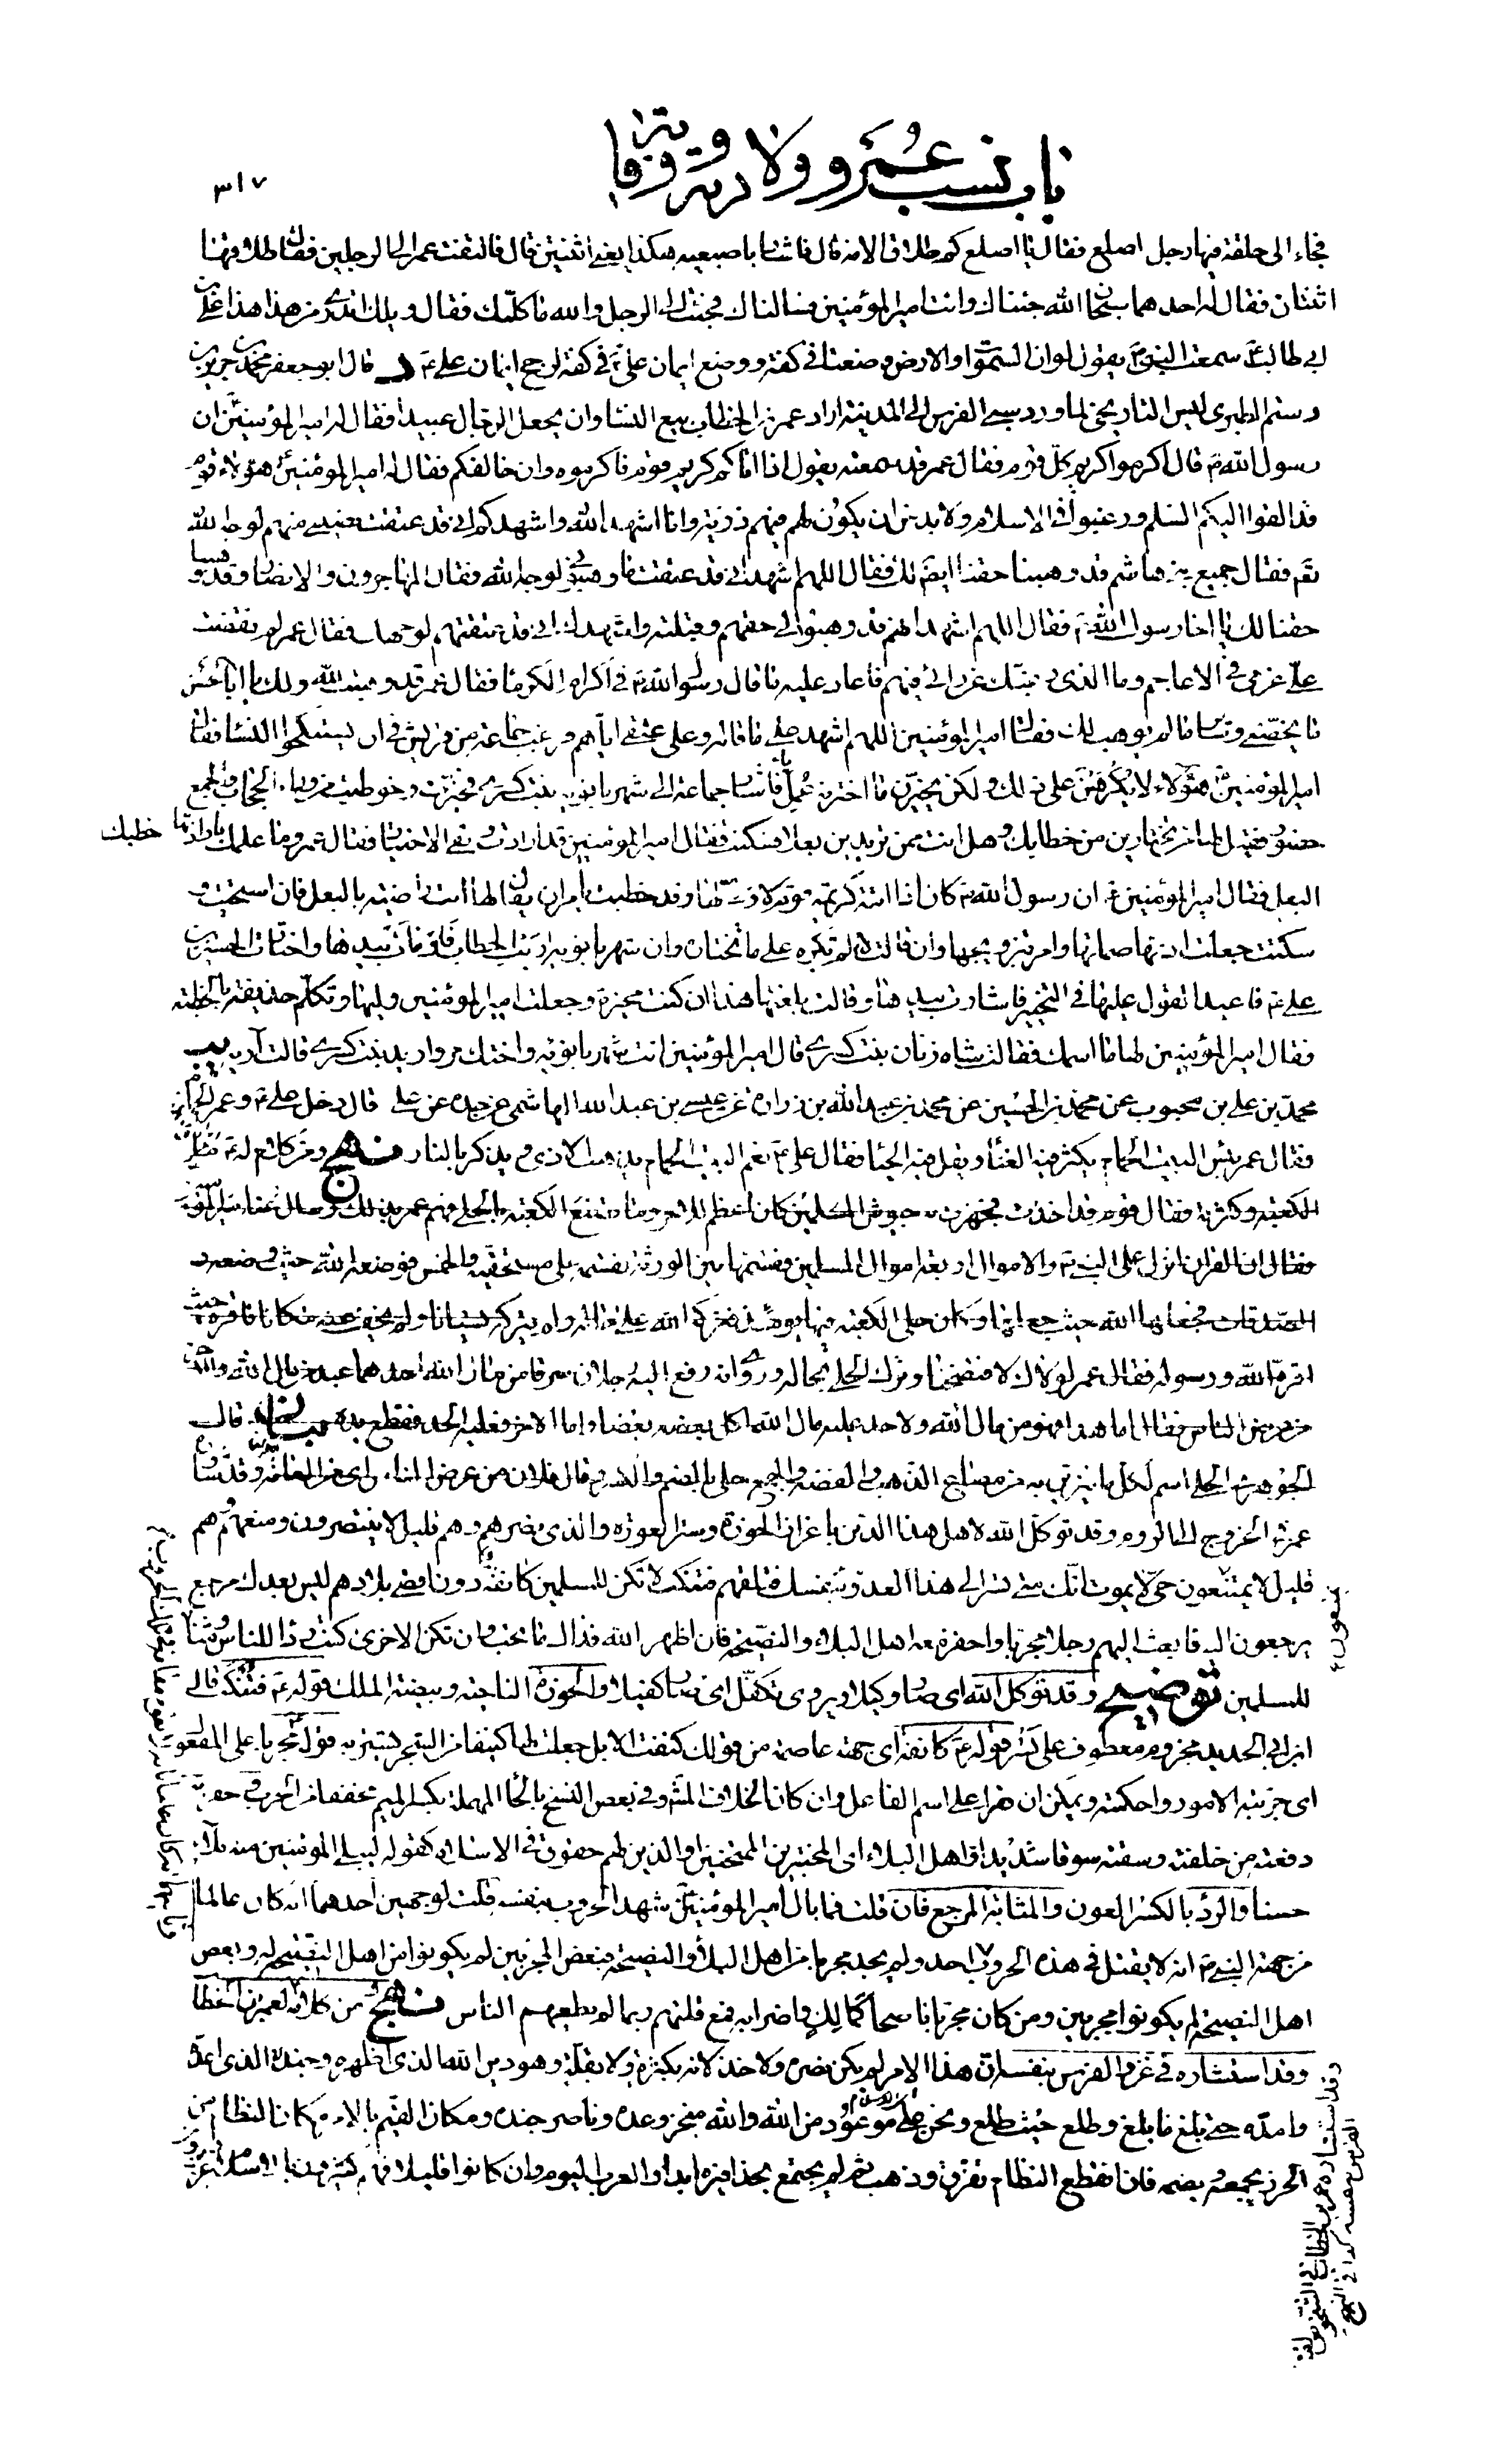 باب نسب عمر و ولادته و وفاته
٣١٧
فجاء الى حلقة فيها رجل اصلع فقال يا اصلع كم طلاق الامة قال فاشار باصبعيه هكذا يعنى اثنتين قال فالتفت عمر الى الرجلين فقال طلاقها
اثنتان فقال له احدهما سبحان الله جئناك وانت امير المؤمنين فسالناك فجئت الى الرجل والله ما كلّمك فقال ويلك اتدرى من هذا هذا على بن
ابى طالب ع سمعت النبى ص يقول لو ان السموات والارض وضعتا فى كفة ووضع ايمان على ع فى كفة لرجح ايمان على ع د قال ابو جعفر محمد بن جرير بن
رستم الطبرى ليس التاريخى لما ورد سبى الفرس الى المدينة اراد عمر بن الخطاب بيع النساء وان يجعل الرجال عبيدا فقال له امير المؤمنين ع ان
رسول الله ص قال اكرموا كريم كل قوم فقال عمر قد سمعته يقول اذا اتاكم كريم قوم فاكرموه وان خالفكم فقال له امير المؤمنين ع هؤلاء قوم
قد القوا اليكم السلم ورغبوا فى الاسلام ولا بد من ان يكون لهم فيهم ذرية وانا اشهد الله واشهدكم انى قد عتقت نصيبى منهم لوجه الله
تعم فقال جميع بنى هاشم قد وهبنا حقنا ايضا لك فقال اللهم اشهد انى قد عتقت ما وهبونى لوجه الله فقال المهاجرون والانصار وقد وهبنا
حقنا لك يا اخا رسول الله ص فقال اللهم اشهد انهم قد وهبوا لى حقهم وقبلته واشهدك انى قد عتقتهم لوجهك فقال عمر لم نقضت
على عزمى فى الاعاجم وما الذى رغبك عن رأيى فيهم فاعاد عليه ما قال رسول الله ص فى اكرام الكرماء فقال عمر قد وهبت لله ولك يا ابا الحسن
ما يخصنى وسائر ما لم يوهب لك فقال امير المؤمنين اللهم اشهد على ما قاله وعلى عتقى اياهم فرغب جماعة من قريش فى ان يستنكحوا النساء فقال
امير المؤمنين ع هؤلاء لا يكرهن على ذلك ولكن يخيرن ما اخترنه عمل به فاشار جماعة الى شهربانويه بنت كسرى فخيرت وخوطبت من وراء الحجاب والجمع
حضور فقيل لها من تختارين من خطابك وهل انت ممن تريدين بعلا فسكتت فقال امير المؤمنين قد ارادت وبقى الاختيار فقال عمر وما علمك بارادتها
خطبك
البعل فقال امير المؤمنين ع ان رسول الله ص كان اذا اتته كريمة قوم لا ولى لها وقد خطبت يأمر ان يقال لها انت راضية بالبعل فان استحيت و
سكتت جعلت اذنها صماتها وامر بتزويجها وان قالت لا لم تكره على ما تختاره وان شهربانويه اريت الخطاب فاومأت بيدها واختارت الحسين بن
على ع فاعيد القول عليها فى التخيير فاشارت بيدها وقالت بلغتها هذا ان كنت مخيرة وجعلت امير المؤمنين وليها وتكلم حذيفة بالخطبة
فقال امير المؤمنين لها ما اسمك فقالت شاه زنان بنت كسرى قال امير المؤمنين انت شهربانويه واختك مرواريد بنت كسرى قالت آريه يب
محمد بن على بن محبوب عن محمد بن الحسين عن محمد بن عبد الله بن زرارة عن عيسى بن عبد الله الهاشمى عن جده عن على قال دخل على ع وعمر الحمام
فقال عمر بئس البيت الحمام يكثر فيه العناء ويقل فيه الحياء فقال على ع نعم البيت الحمام يذهب الاذى ويذكر بالنار نهج ومن كلام له ع
الكعبة وكثرته فقال قوم لو اخذته فجهزت به جيوش المسلمين كان اعظم للاجر وما تصنع الكعبة بالحلى فهم عمر بذلك وسال عنه امير المؤمنين
فقال ان القران انزل على النبى ص والاموال اربعة اموال المسلمين فقسمها بين الورثة والفئ فقسمه على مستحقيه والخمس فوضعه الله حيث وضعه و
الصدقات فجعلها الله حيث جعلها وكان حلى الكعبة فيها يومئذ فتركه الله على حاله ولم يتركه نسيانا ولم يخف عنه مكانا فاقره حيث
اقره الله ورسوله فقال عمر لولاك لافتضحنا وترك الحلى بحاله وروى انه رفع اليه رجلان سرقا من مال الله احدهما عبد من مال الله والاخر
من عرض الناس فقال اما هذا فهو من مال الله ولا حد عليه مال الله اكل بعضه بعضا واما الاخر فعليه الحد فقطع يده بيان قال
الجوهرى الحلى اسم لكل ما يتزين به من مصاغ الذهب والفضة والجمع حلى بالضم والكسر وقال فلان من عرض الناس اى من العامة وقد شاوره
عمر فى الخروج الى الروم وقد توكل الله لاهل هذا الدين باعزاز الحوزة وستر العورة والذى نصرهم وهم قليل لا ينتصرون ومنعهم وهم
قليل لا يمتنعون حى لا يموت انك متى تسر الى هذا العدو بنفسك فتلقهم فتنكب لا تكن للمسلمين كانفة دون اقصى بلادهم ليس بعدك مرجع
يرجعون اليه فابعث اليهم رجلا مجربا واحفز معه اهل البلاء والنصيحة فان اظهر الله فذاك ما تحب وان تكن الاخرى كنت ردءا للناس ومثابة
للمسلمين توضيح وقد توكل الله اى صار وكيلا ويروى تكفل اى صار كفيلا والحوزة الناحية وبيضة الملك قوله ع فتنكب قال
ابن ابى الحديد مجزوم معطوف على تسر قوله ع كانفة اى جهة عاصمة من قولك كنفت الابل جعلت لها كنيفا من الشجر تستتر به قوله ع مجربا على المفعول
اى جربته الامور واحكمته ويمكن ان يقرا على اسم الفاعل وان كان الخلاف المشهور وفى بعض النسخ بالحاء المهملة بكسر الميم مخففا من الحرب حفزته
دفعته من خلفه وسقته سوقا شديدا واهل البلاء اى المختبرين الممتحنين او الذين لهم حقوق فى الاسلام كقوله ليبلى المؤمنين منه بلاء
حسنا والردء بالكسر العون والمثابة المرجع فان قلت فما بال امير المؤمنين ع شهد الحروب بنفسه قلت لوجهين احدهما انه كان عالما
من جهة النبى ص انه لا يقتل فى هذه الحروب احد ولم يجد مجربا من اهل البلاء والنصيحة فبعض المجربين لم يكونوا من اهل النصيحة له وبعض
اهل النصيحة لم يكونوا مجربين ومن كان مجربا ناصحا كمالك واضرابه فمع قلتهم ربما لم يطعهم الناس نهج من كلام له لعمر بن الخطاب
وقد استشاره فى غزو الفرس بنفسه ان هذا الامر لم يكن نصره ولا خذلانه بكثرة ولا بقلة وهو دين الله الذى اظهره وجنده الذى اعده
وامده حتى بلغ ما بلغ وطلع حيث طلع ونحن على موعود من الله والله منجز وعده وناصر جنده ومكان القيم بالامر مكان النظام من
الخرز يجمعه ويضمه فان انقطع النظام تفرق وذهب ثم لم يجتمع بحذافيره ابدا والعرب اليوم وان كانوا قليلا فهم كثيرون بالاسلام عزيزون